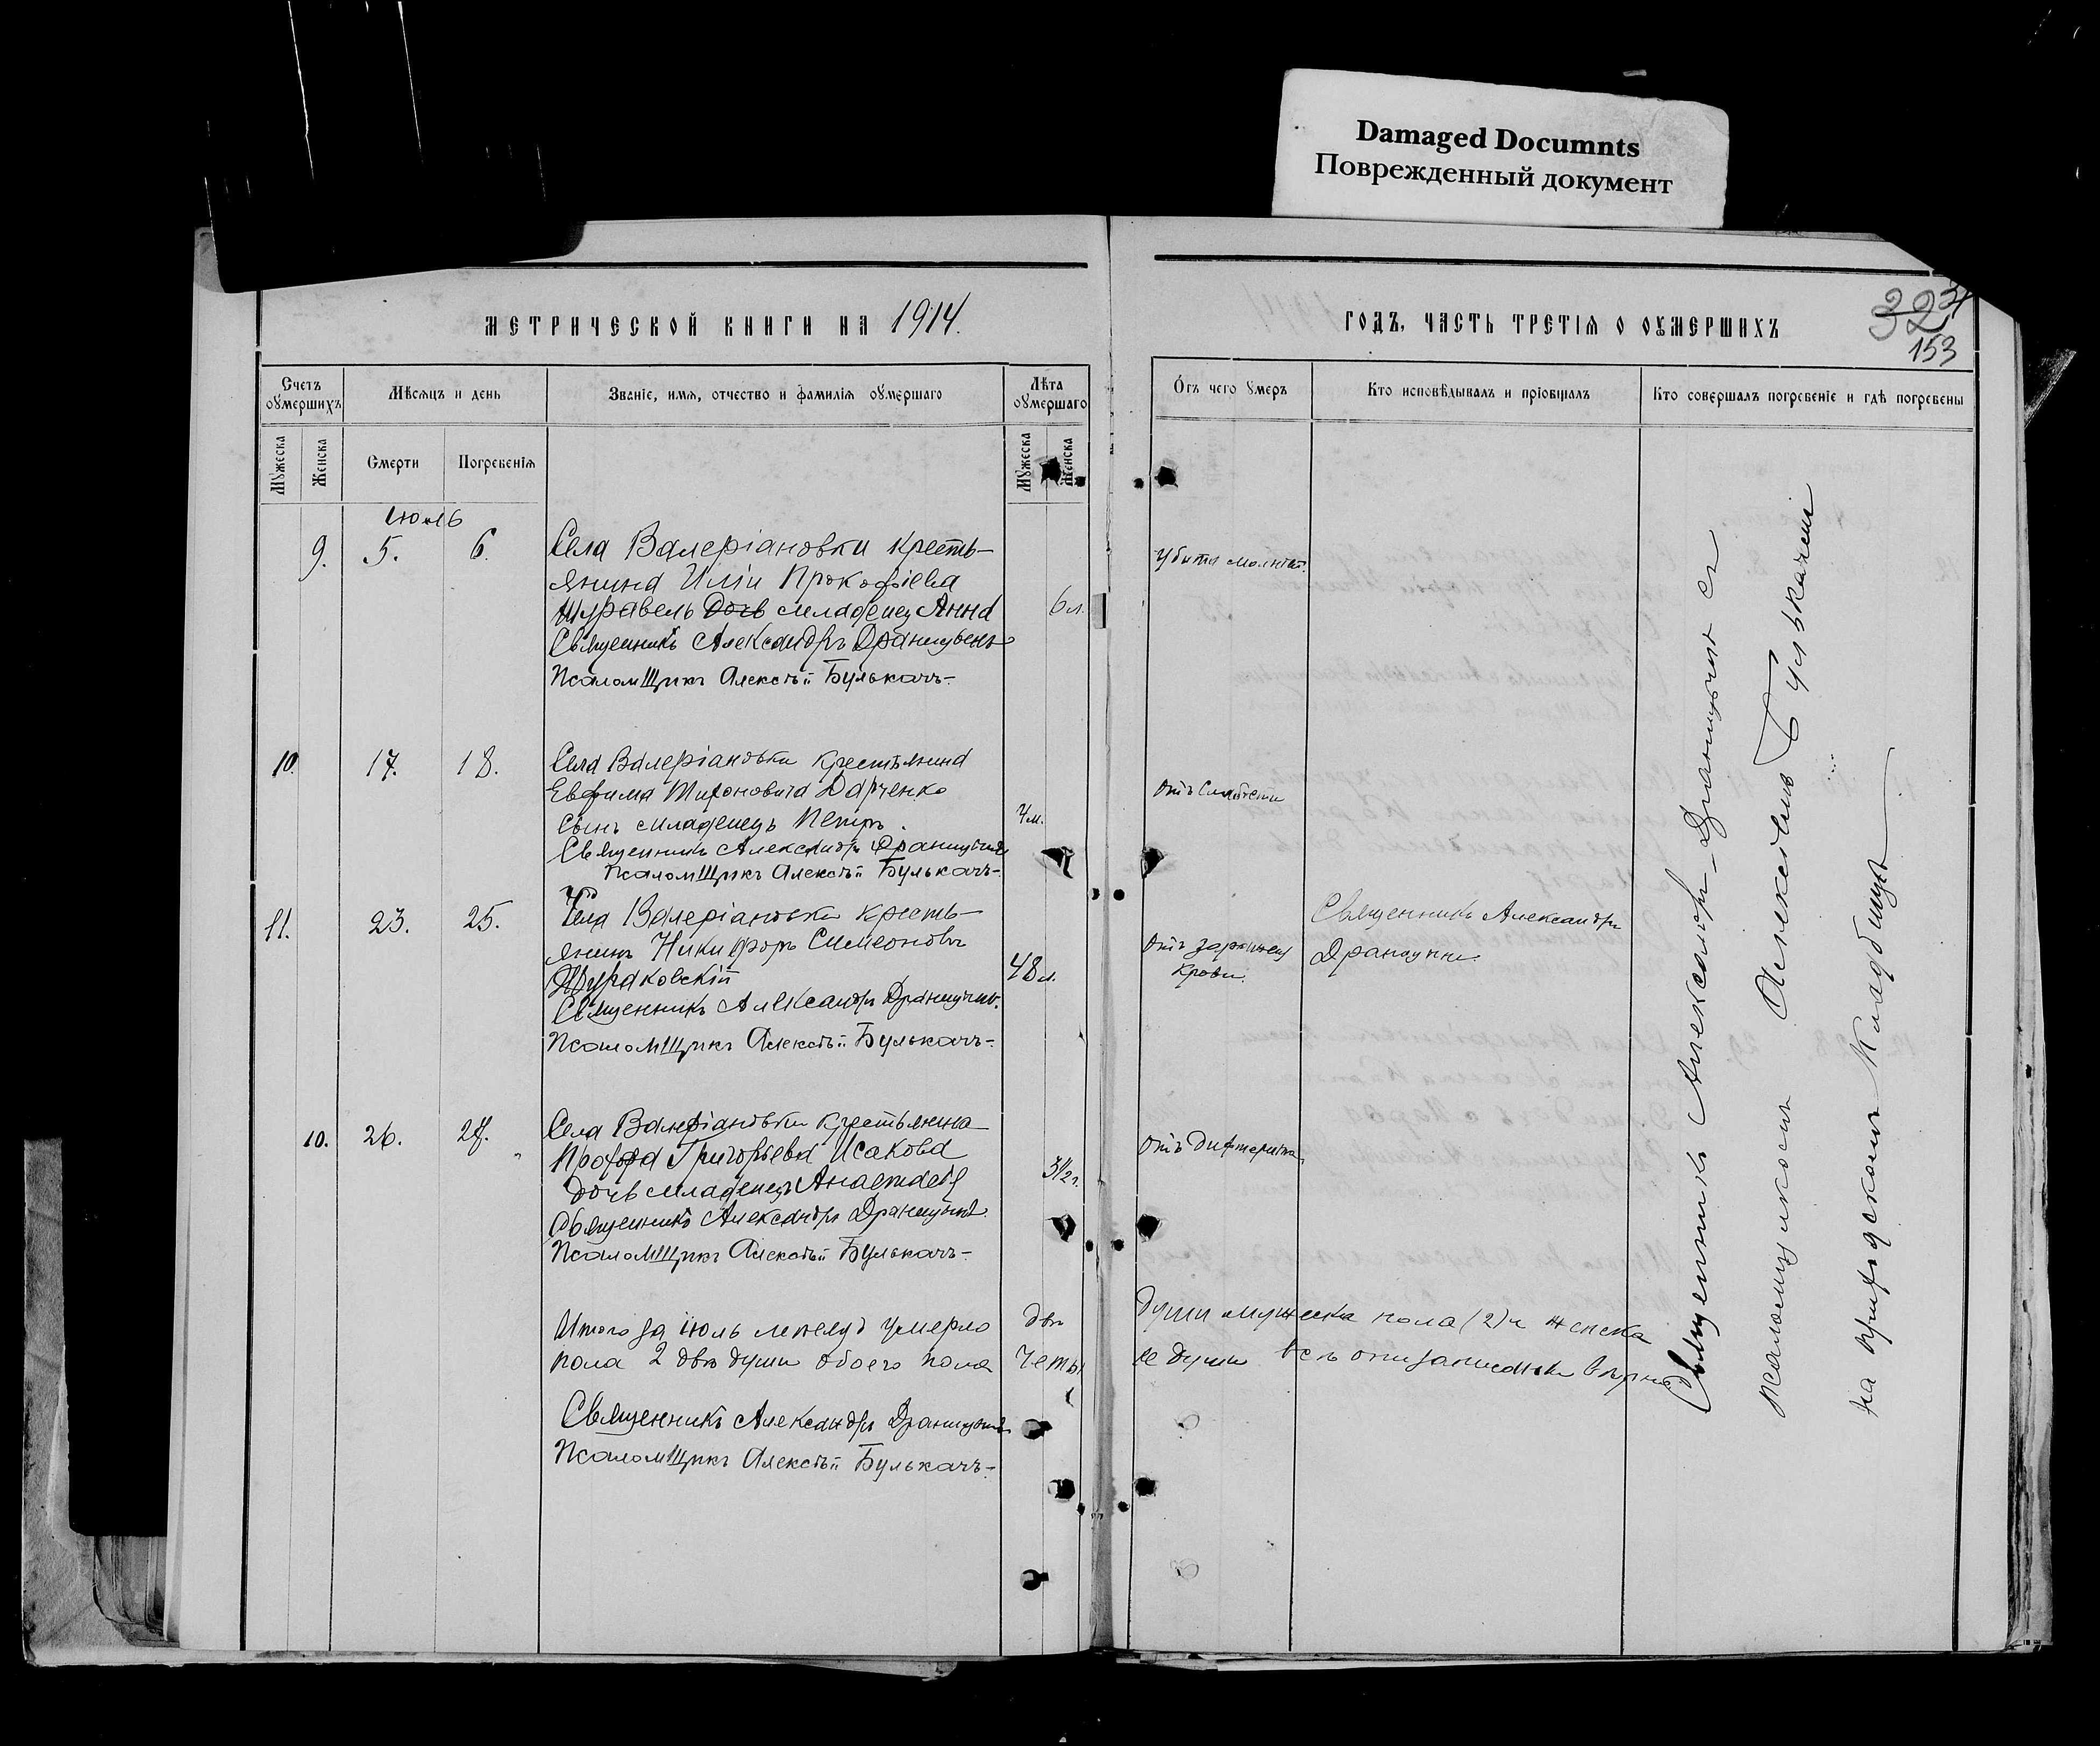 Damaged Documnts
Поврежденный документ
Метрической книги на 1914.
годъ, часть третія о оумершихъ
323
153
Счетъ оумершихъ
Мѣсяцъ и день
Званіе, имя, отчество и фамилія оумершаго
Лѣта оумершаго
Отъ чего умеръ
Кто исповѣдывалъ и пріобщалъ
Кто совершалъ погребеніе и гдѣ погребены
Мужеска
Женска
Смерти
Погребенія
Мужеска
Женска
Июль
9. 5. 6. Села Валеріановки кресть-
янина Иліи Прокофіева
Журавель дочь младенец Анна 6 л.
Убита молніей.
Священникъ Александръ
Псаломщикъ Алексѣй Булькачъ
10. 17. 18. Села Валеріановки крестьянина
Евфима Тихоновича Дарченко
сынъ младенецъ Петръ. 4 м.
отъ слабости
Священникъ Александръ
Псаломщикъ Алексѣй Булькачъ
11. 23. 25. Села Валеріановки кресть-
янинъ Никифоръ Симеоновъ
Жураковскій 48 л.
отъ заражен
крови.
Священникъ Александръ
Священникъ Александръ
Псаломщикъ Алексѣй Булькачъ
10. 26. 27. Села Валеріановки крестьянина
Григорьева Исакова
дочь младенецъ Анастасія 3 1/2 г.
отъ дифтерита
Священникъ Александръ
Псаломщикъ Алексѣй Булькачъ
Итого за іюль умерло двѣ души мужеска пола (2) и женска
пола 2 двѣ души обоего пола четыре души. Всѣ они записаны вѣрно
Священникъ Александръ
Псаломщикъ Алексѣй Булькачъ
Священникъ Александръ съ
псаломщикомъ Алексѣемъ Булькачемъ
на приходскомъ кладбищѣ